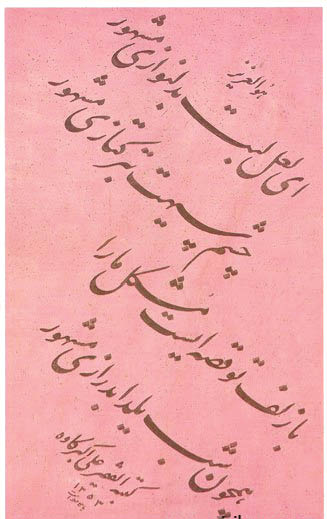 هوالعزیز
ای لعل لبت بدلنوازی مشهور
چشم سیهت بترکتازی مشهور
با زلف تو قصه ایست مشکل ما را
همچون شب یلدا بدرازی مشهور
کتبه الفقیر علی اکبر کاوه
۱۳۵۳